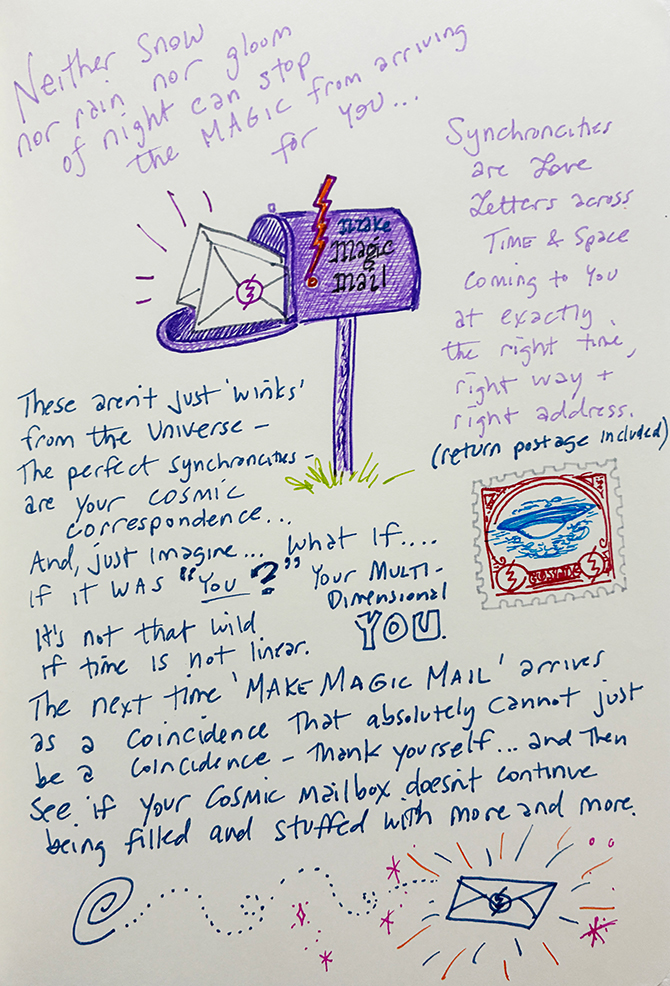 Neither Snow
nor rain nor gloom
of night can stop
the MAGIC from arriving
for YOU...
Synchroncities
are Love
Letters across
TIME & SPACE
coming to You
at exactly
the right time,
right way +
right address.
(return postage included)
Make
Magic
Mail
These aren't just 'winks'
from the Universe –
The perfect synchroncities –
are Your COSMIC
correspondence...
And, just Imagine... What If....
if it was "You?"
Your MULTI-
Dimensional
YOU.
It's not that wild
if time is not linear.
The next time 'MAKE MAGIC MAIL' arrives
as a Coincidence That absolutely cannot just
be a Coincidence – Thank yourself... and Then
See if Your Cosmic Mailbox doesn't continue
being filled and stuffed with more and more.